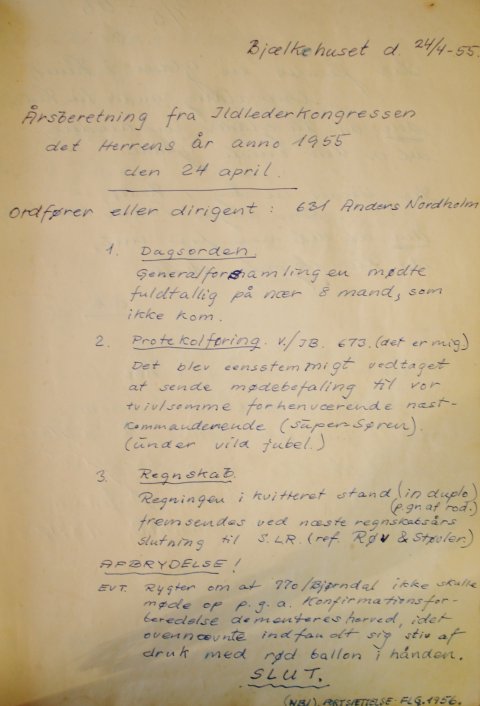 Bjælkehuset d. 24/4-55.
Årsberetning fra Ildlederkongressen
det Herrens år anno 1955
den 24 april.
Ordfører eller dirigent: 631 Anders Nordholm
1. Dagsorden.
Generalforsamlingen mødte
fuldtallig på nær 8 mand, som
ikke kom.
2. Protekolføring. v./JB. 673. (det er mig)
Det blev eensstemmigt vedtaget
at sende mødebefaling til vor
tvivlsomme forhenværende næst-
kommanderende (super-Søren).
(under vild jubel.)
3. Regnskab.
Regningen i kvitteret stand (in duplo)
(p.gr. af rod.)
fremsendes ved næste regnskabsårs
slutning til S.L.R. (ref. Røv & Støvler.)
AFBRYDELSE!
EVT. Rygter om at 770/Bjørndal ikke skulle
møde op p.g.a. Konfirmationsfor-
beredelse dementeres herved, idet
ovennævnte indfandt sig stiv af
druk med rød ballon i hånden.
SLUT.
(NB!). FORTSÆTTELSE FLG. 1956.